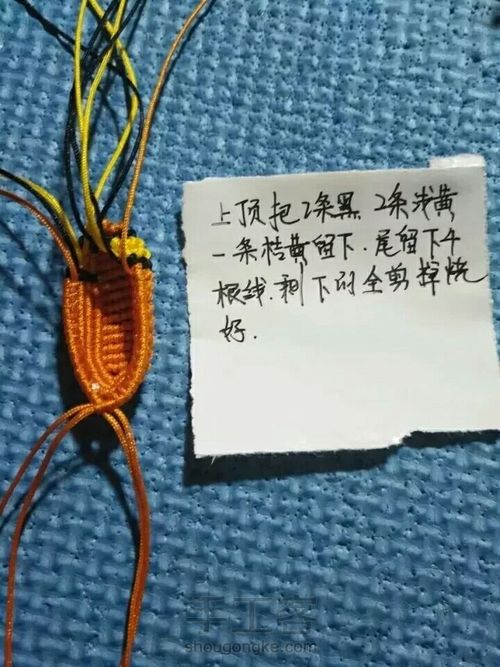 上顶把2条黑 2条浅黄
一条桔黄留下. 尾留下4
根线. 剩下的全剪掉烧
好.
手工客
shougongke.com